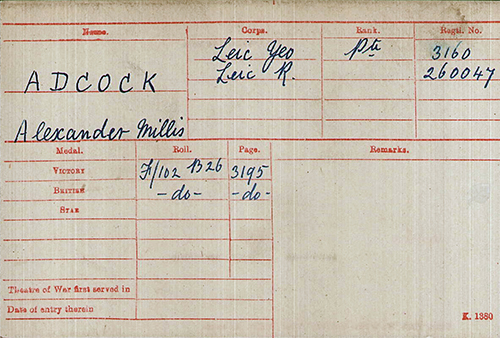 Name. Corps. Rank. Regtl. No.
Leic Yeo Pte 3160
ADCOCK Leic R. 260047
Alexander Millis
Medal. Roll. Page. Remarks.
VICTORY F/102 B26 3195
BRITISH -do- -do-
STAR
Theatre of War first served in
Date of entry therein
K. 1380